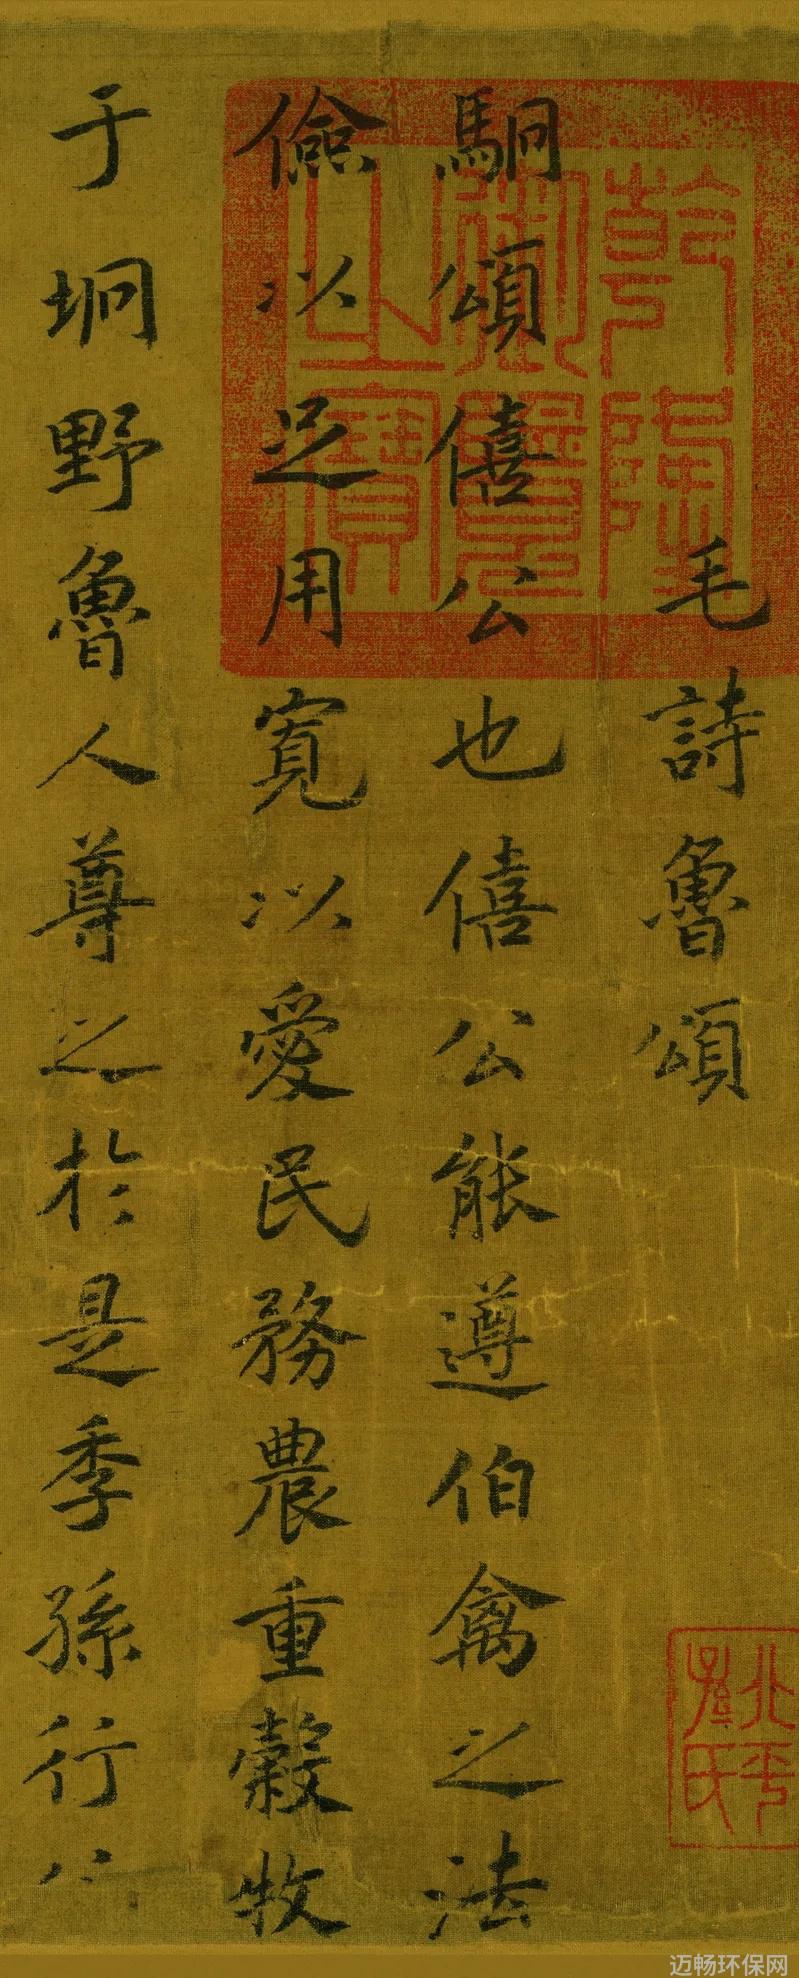 乾隆御覽之寶
毛詩魯頌
北平孫氏
駉頌僖公也僖公能遵伯禽之法
儉以足用寬以愛民務農重穀牧
于坰野魯人尊之於是季孫行
迈畅环保网